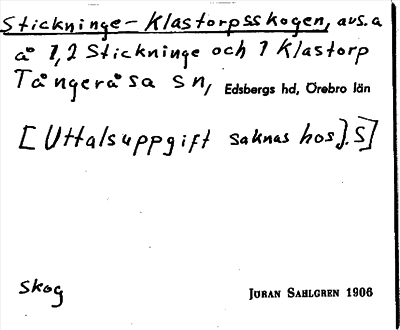 Stickninge-Klastorpsskogen, avs.a
å 1,2 Stickninge och 1 Klastorp
Tångeråsa sn, Edsbergs hd, Örebro län
[Uttalsuppgift saknas hos J.S]
Skog
JÖRAN SAHLGREN 1906